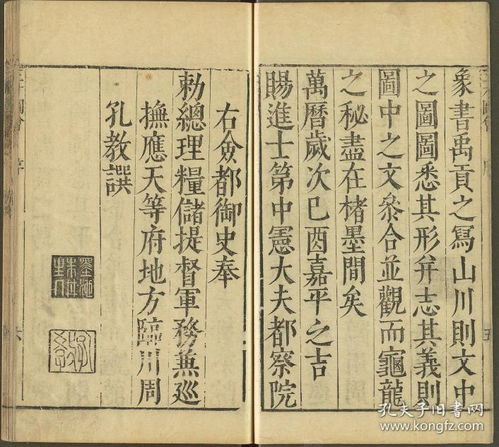 象書禹貢之寫山川則文中
之圖圖悉其形弁志其義則
圖中之文叅合並觀而龜龍
之秘盡在楮墨間矣
萬曆歲次己酉嘉平之吉
賜進士第中憲大夫都察院
右僉都御史奉
勑總理糧儲提督軍務兼巡
撫應天等府地方臨川周
孔教譔
孔夫子旧书网
www.kongfz.com